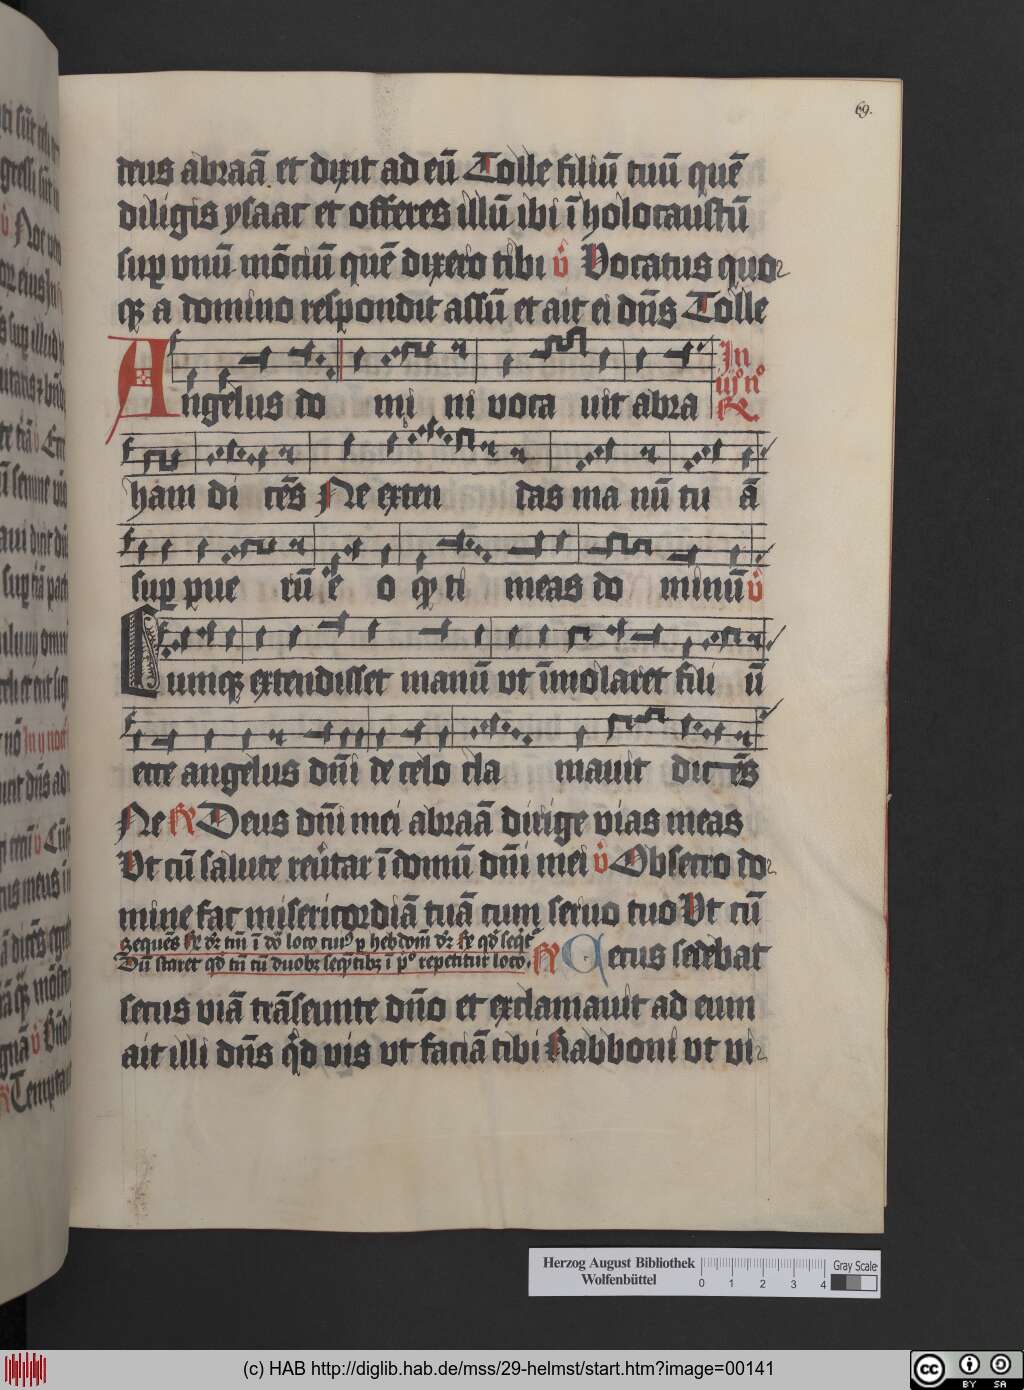 69.
deus abraā et dixit ad eū Tolle filiū tuū quē
diligis ysaac et offeres illū ibi ī holocaustū
suꝑ unū mōciū quē dixero tibi v̄ Vocatus quo
qꝫ a domino respondit assū et ait ei dn̄s Tolle
In
iijº nº
R
Angelus do mi ni voca uit abra
ham di cēs Ne exten das ma nū tu ā
suꝑ pue rū e o qꝫ ti meas do minū v̄
Cumqꝫ extendisset manū ut īmolaret fili ū
ecce angelus dn̄i de celo cla mauit dicēs
Ne R Deus dn̄i mei abraā dirige vias meas
Vt cū salute reūtar ī domū dn̄i mei v̄ Obsecro do
mine fac misericordiā tuā cum seruo tuo Vt cū
Dū staret qd tn̄ cū duobꝫ seqn̄tibꝫ ī pº repetitur loco.
R Cecus sedebat
secus viā trāseunte dn̄o et exclamauit ad eum
ait illi dn̄s qd vis ut faciā tibi Rabboni ut vi
Herzog August Bibliothek
Wolfenbüttel
0 1 2 3 4
Gray Scale
(c) HAB http://diglib.hab.de/mss/29-helmst/start.htm?image=00141
cc BY SA